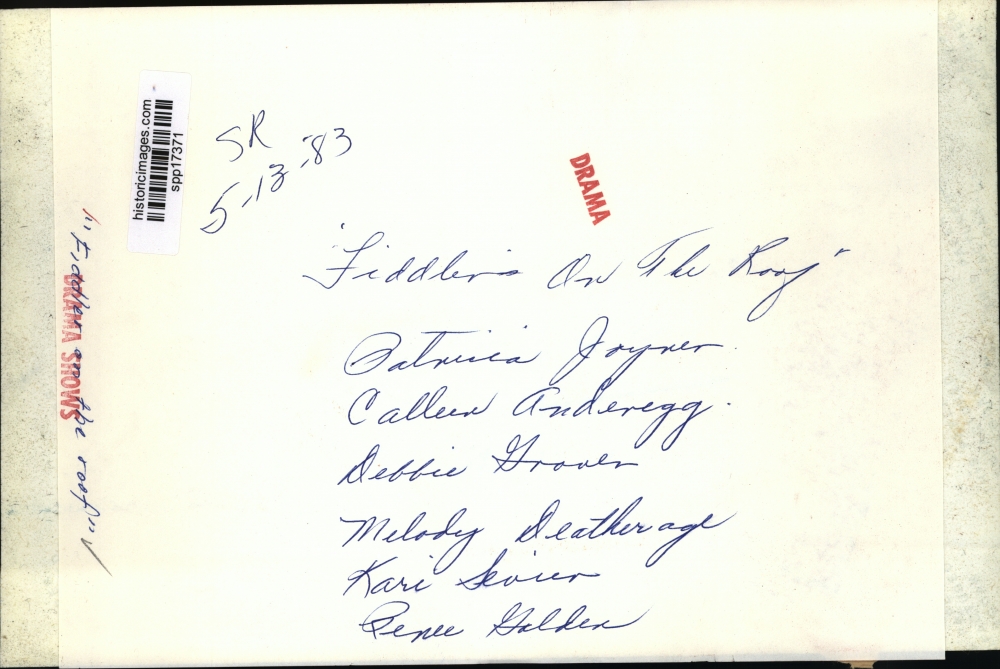 historicimages.com
spp17371
SR
5-13-83
DRAMA
"Fiddler on the roof"
DRAMA SHOWS
"Fiddlers On The Roof"
Patricia Joyner
Calleen Anderegg.
Debbie Grover
Melody Deatherage
Kari Sevier
Renee Golden